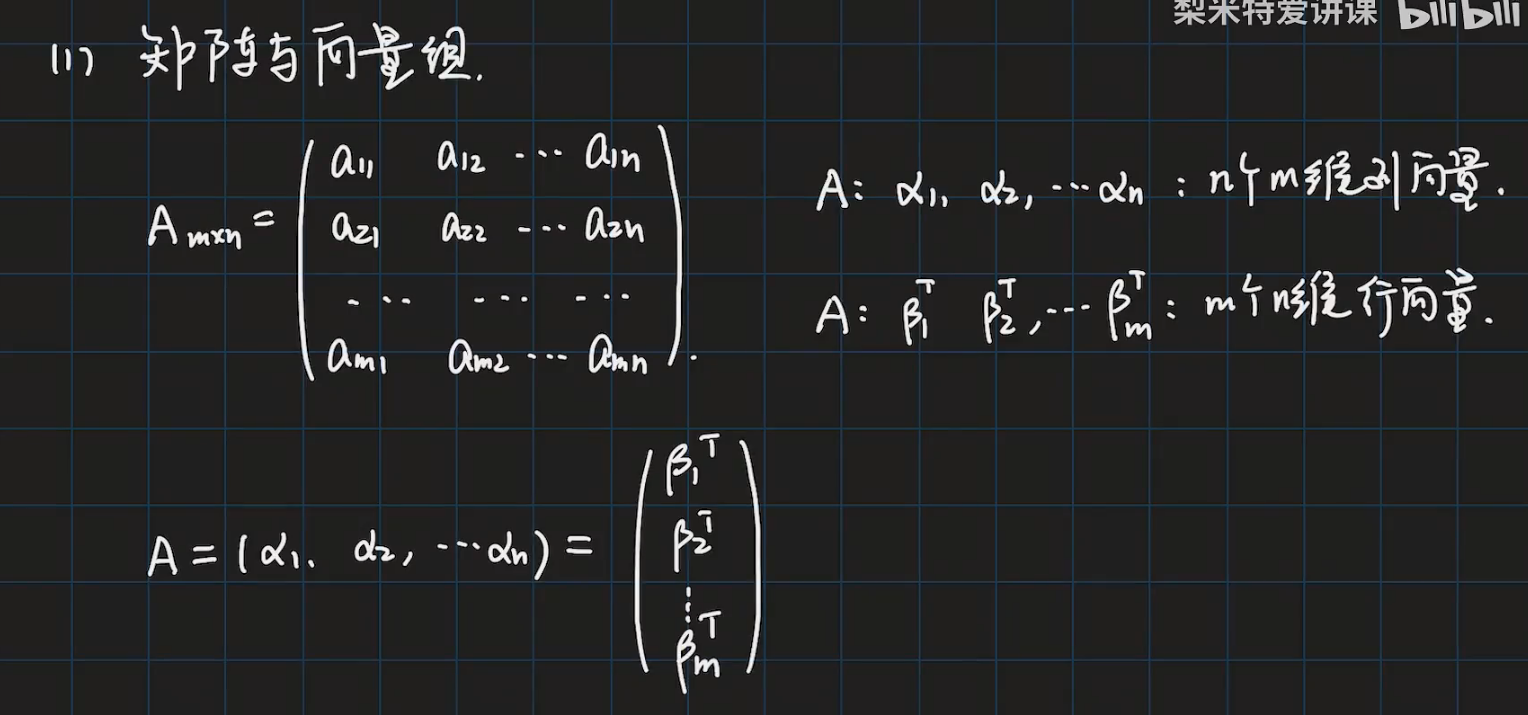 梨米特爱讲课 bilibili
(1) 矩阵与向量组.
A m×n = ( a11 a12 ··· a1n
a21 a22 ··· a2n
··· ··· ···
am1 am2 ··· amn ).
A: α1, α2, ··· αn : n个m维列向量.
A: β1^T β2^T, ··· βm^T : m个n维行向量.
A = (α1、 α2, ··· αn) = ( β1^T
β2^T
⋮
βm^T )